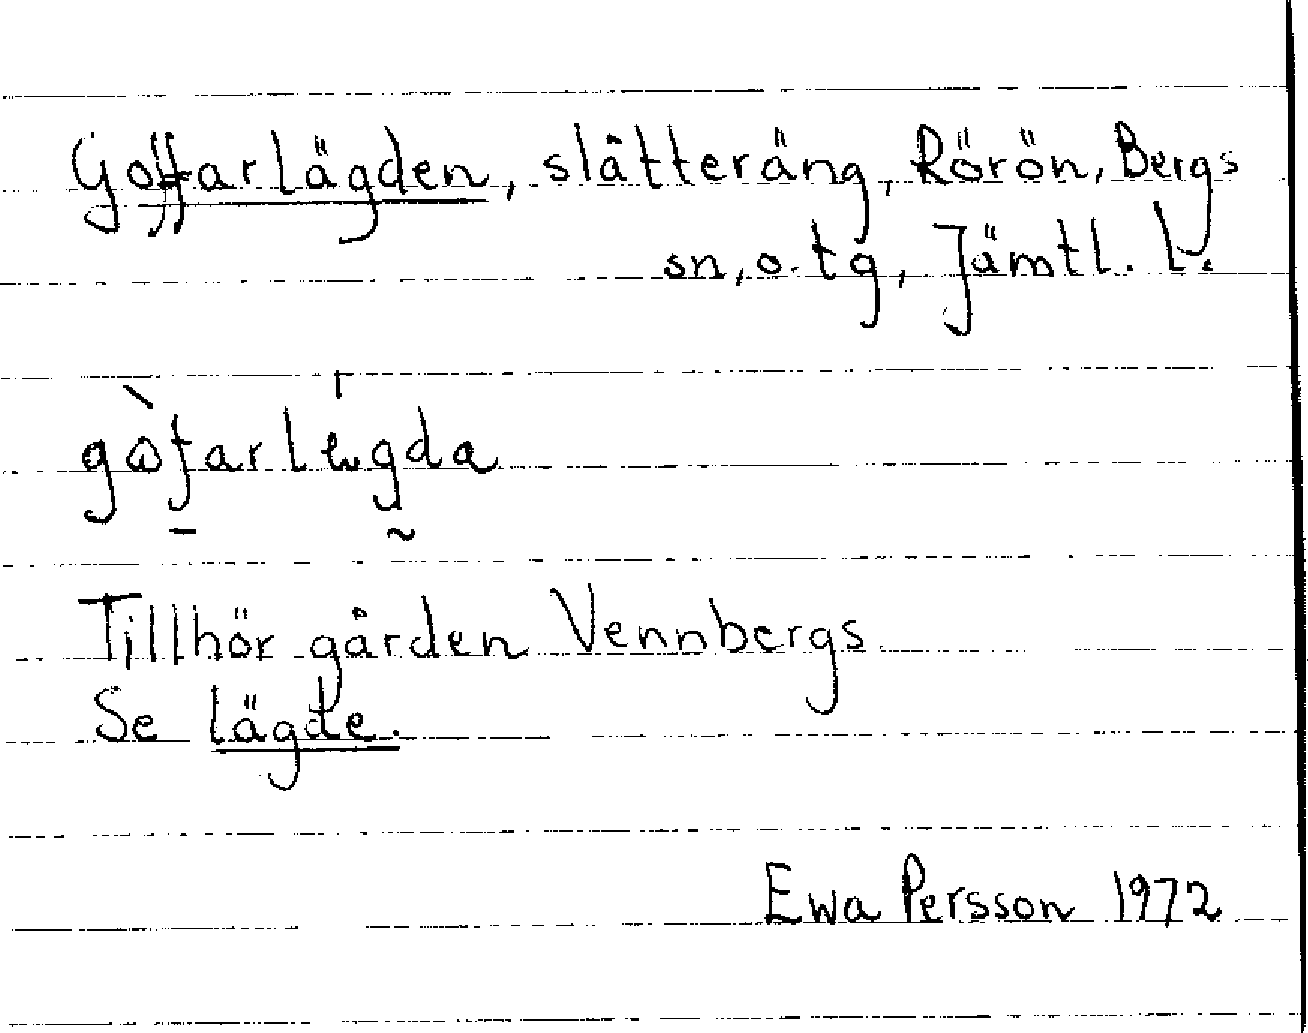 Goffarlägden, slåtteräng, Rörön, Bergs
sn, o. tg, Jämtl. L.
Tillhör gården Vennbergs
Se lägde.
Ewa Persson 1972